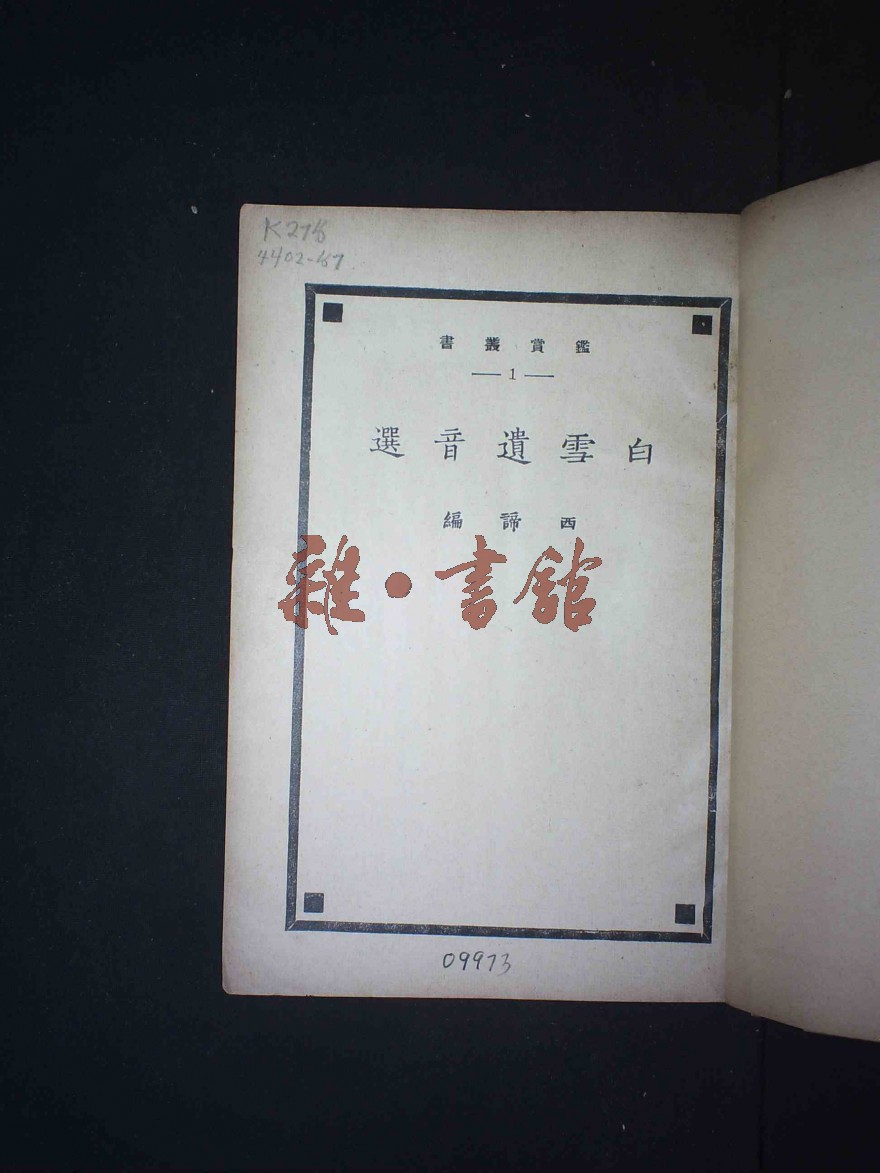 K276
4402-67
鑑賞叢書
— 1 —
白雪遺音選
西諦編
雜·書館
09973